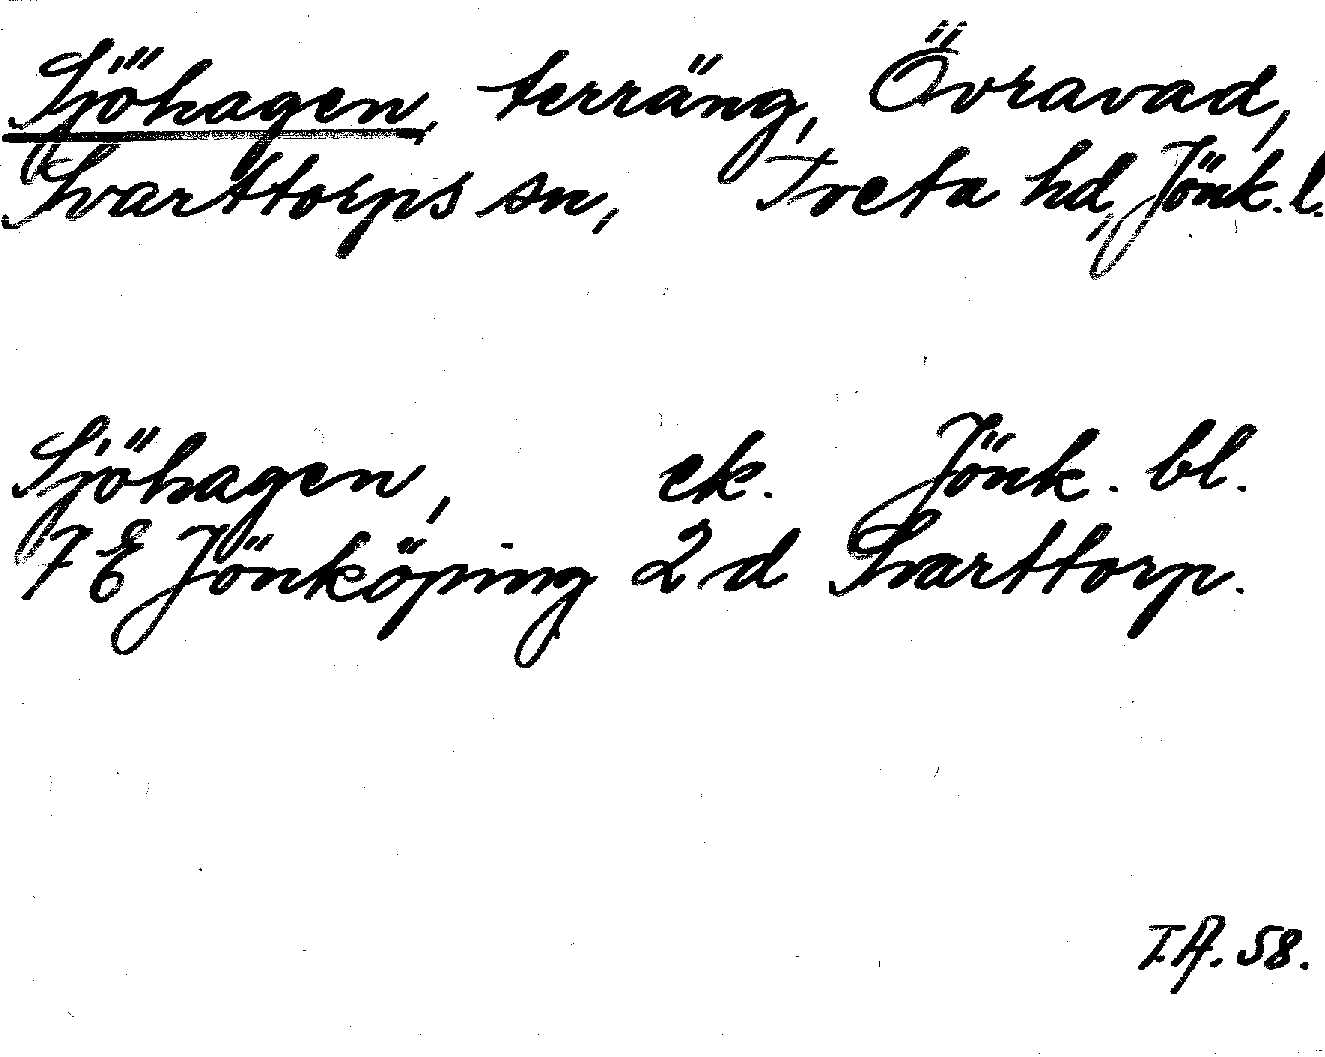 Sjöhagen, terräng, Övravad,
Svarttorps sn, Tveta hd, Jönk. l.
Sjöhagen, ek. Jönk. bl.
7 E Jönköping 2 d Svarttorp.
T.A. 58.